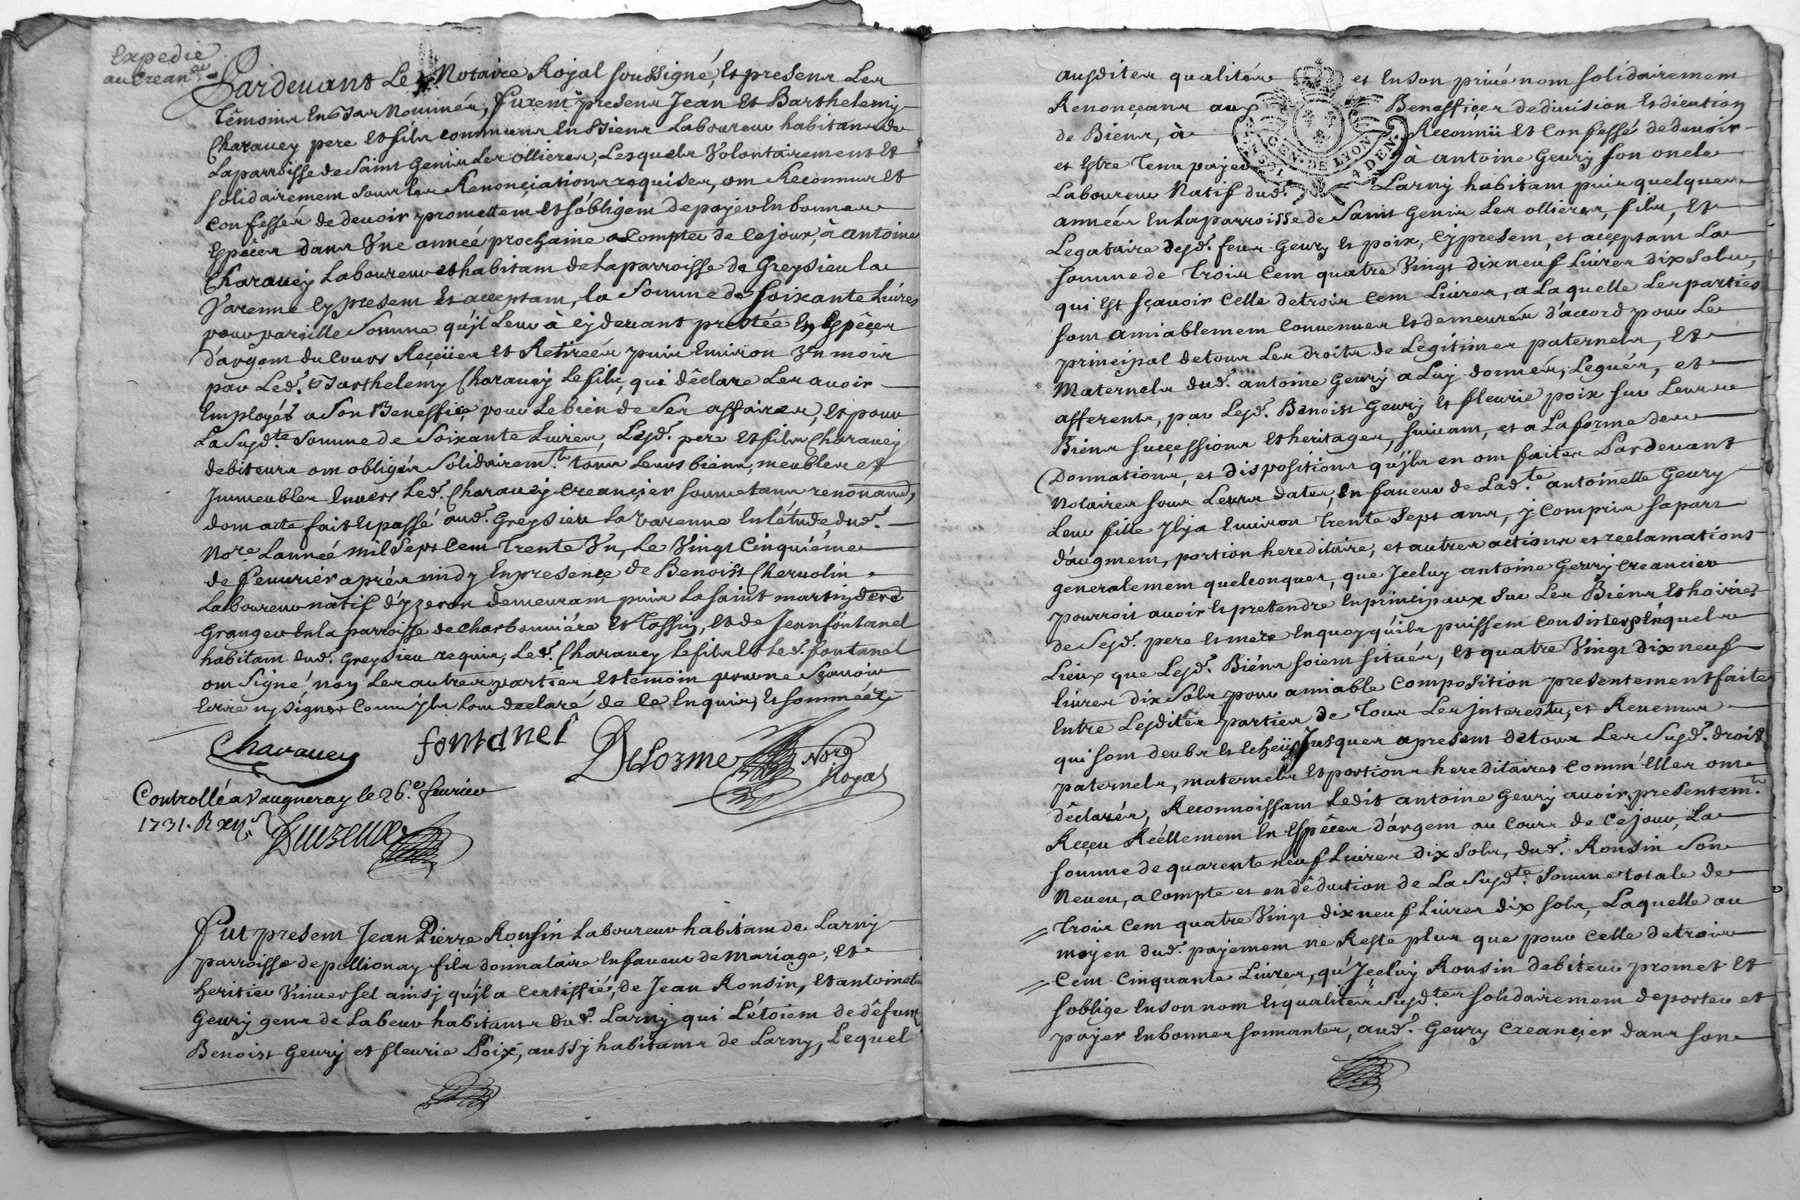 Expedié
au Crean.er
Pardevant Le Notaire Royal soussigné, Et presens Les
têmoins En Bas Nommés, furent presens Jean Et Barthelemy
Charavey pere et fils communs En Biens Laboureurs habitans de
La parroisse de Saint Genis Les ollieres, Lesquels Volontairement Et
solidairement sous les Renonçiations requises, ont Reconnus et
Confessés de devoir promettent et s'obligent de payer En bonnes
Espêces dans Vne année prochaine a Compter de Ce jour, à antoine
Charavey Laboureur et habitant de La parroisse de Greysieu la
Varenne Cy present Et acceptant, la Somme de soixante Livres
pour pareille Somme qu'jl Leur à cy devant prêtée En Espêces
d'argent du Cours Reçüës et Retirées puis Environ Vn mois
par Led. Barthelemy Charavey Le fils, qui dêclare Les avoir
Employés a Son Beneffiçe pour Le bien de Ses affaires, Et pour
La Susd.te Somme de Soixante Livres, Lesd. pere et fils Charavey
debiteurs ont obligés Solidairem.t tous Leurs biens, meubles et
Jmmeubles Envers Led. Charavey Creançier soumettans renonans,
dont acte fait et passé aud. Greysieu La Varenne En L'êtude dud.
No.re L'année mil Sept Cent trente Vn, Le Vingt Cinquiéme
de fevrier aprés midy En presence de Benoist Chervolin
Laboureur natif d'yzeron demeurant puis La Saint martin
Granger En La parroisse de Charbonniére Et Tassin, et de Jean fontanel
habitant dud. Greysieu requis, Led. Charavey Le fils Et Led. fontanel
ont Signé non Les autres parties Et têmoin pour ne Sçavoir
Ecrire ny Signer Comm'jls L'ont declaré de Ce Enquis, Et sommés
Charavey fontanel Delorme No.re
Royal
Controllé a Vaugneray le 26.e fevrier
1731. R xii s
Duvzeux
fut present Jean Pierre Ronsin Laboureur habitant de Larny
parroisse de pollionay fils donnataire En faveur de Mariage, Et
heritier Vniversel ainsj qu'jl a Certiffié, de Jean Ronsin, Et antoinete
Geury gens de Labeur habitants dud. Larny qui L'étoient de dêfunt
Benoist Geury et fleurie Poix, aussj habitants de Larny, Lequel
ausdites qualités et En son privé nom solidairement
Renonçeant aux Beneffiçes de division Et diëution
de Biens, à Reconnü Et Confessé de devoir
et Estre tenu payer à antoine Geury son oncle
GEN. DE LYON 4 DEN.
Laboureur Natif dud. Larny habitant puis quelques
années En La parroisse de Saint Genis Les ollieres, fils, Et
Legataire desd. feus Geury Et poix, Cy present, et acceptant La
somme de trois Cent quatre Vingt dix neuf Livres dix Sols,
qui Est sçavoir Celle de trois Cent Livres, a Laquelle Les parties
sont amiablement Convenues Et demeurés d'accord pour Le
principal de tous Les droits de Legitimes paternels, Et
Maternels dud. antoine Geury a Luy donnés, Legués, et
afferents, par Lesd. Benoist Geury Et fleurie poix sur Leurs
Biens successions Et heritages, suivant, et a La forme des
Donnations, et dispositions qu'jls en ont faites Pardevant
Notaires sous Leurs dates, En faveur de Lad.te antoinette Geury
Leur fille Jl y a Environ trente Sept ans, y Compris sa part
d'augment, portion hereditaire, et autres actions et reclamations
generalement quelconques, que Jceluy antoine Geury Creancier
pourroit avoir Et pretendre En principaux Sur Les Biens Et hoiries
de Sesd. pere Et mere En quoy qu'ils puissent Consister, En quels
Lieux que Lesd. Biéns soient situés, Et quatre Vingt dix neuf
Livres dix Sols pour amiable Composition presentement faite
Entre Lesdites parties de tous Les Jnterests, et Revenus
qui sont deubs Et Echeüs Jusques a present de tous Les Susd. droits
paternels, maternels Et portions hereditaires Comm'Elles ont
dêclarés, Reconnoissant Ledit antoine Geury avoir presentem.t
Reçeu Réellement En Espêces d'argent au Cours de Ce jour, La
somme de quarente neuf Livres dix Sols, dud. Ronsin Son
Neveu, a Compte et en dêduction de La Susd.te Somme totale de
trois Cent quatre Vingt dix neuf Livres dix sols, Laquelle au
moyen dud. payement ne Reste plus que pour Celle de trois
Cent Cinquante Livres, qu'Jceluy Ronsin debiteur promet Et
s'oblige En son nom Et qualités Susd.tes solidairement de porter et
payer En bonnes sonnantes, aud. Geury Creançier dans son